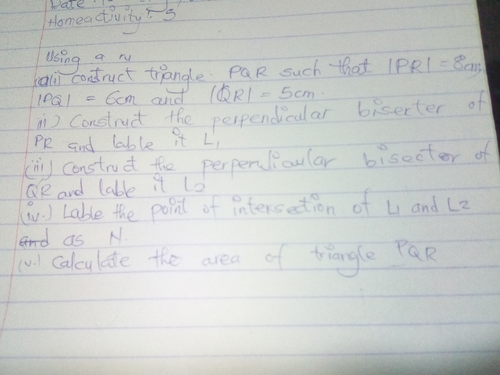 Date:
Homeactivity:- 3
Using a ru
(a)i) contruct triangle PQR such that |PR| = 8cm,
|PQ| = 6cm and |QR| = 5cm.
ii) Construct the perpendicular biserter of
PR and lable it L1
(iii) Construct the perpendicular bisecter of
QR and lable it L2
(iv.) Lable the point of intersection of L1 and L2
and as N.
(v.) Calculate the area of triangle PQR